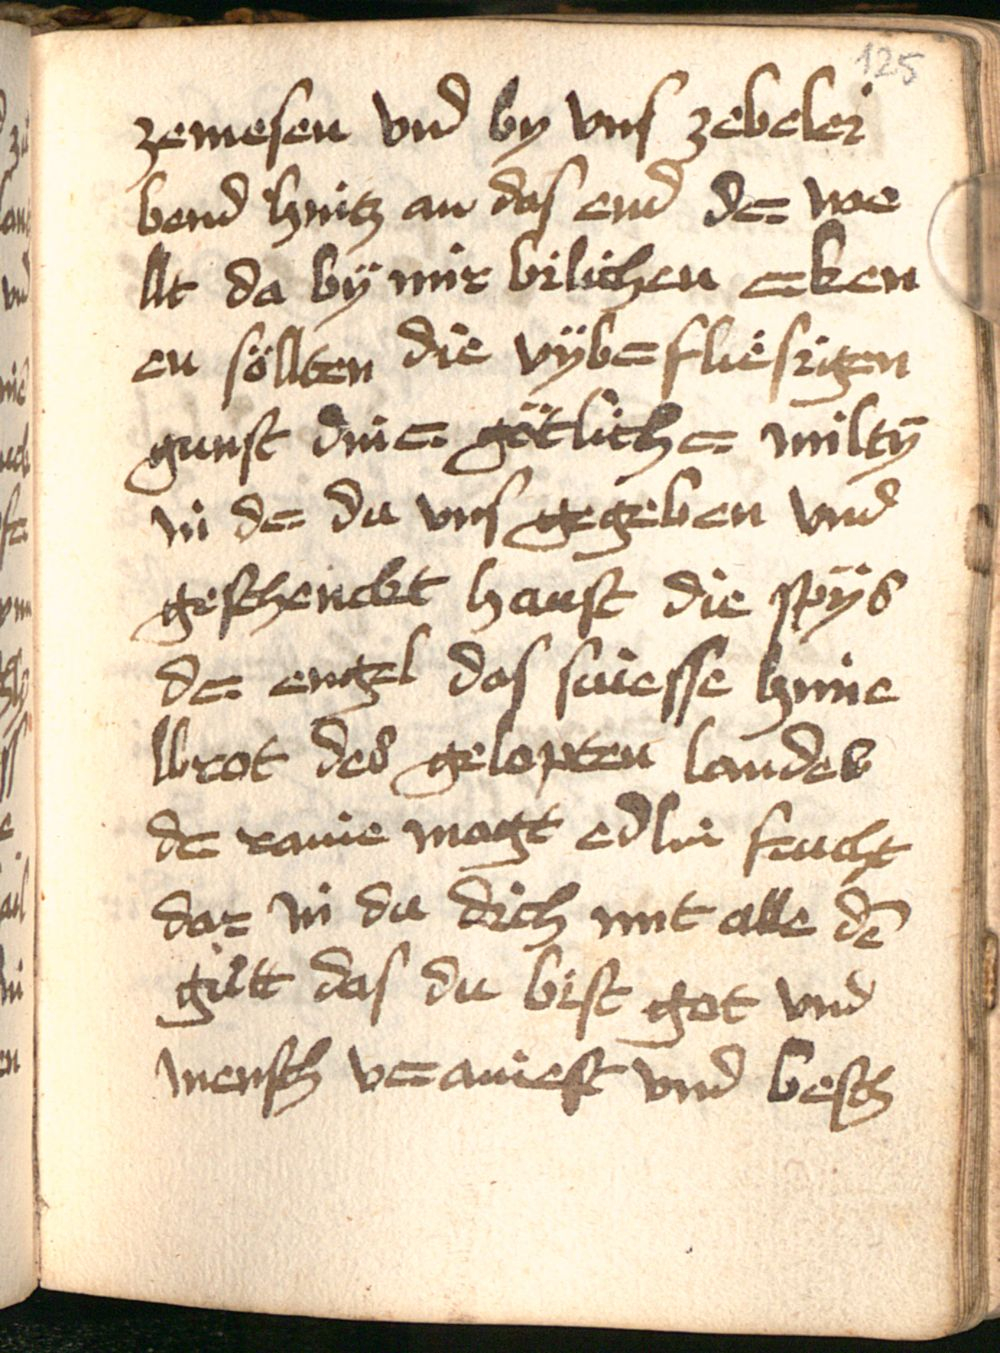 125
zemesen vnd by vns zebelei
bend hintz an das end der we
llt da by mir bilichen erken
en söllten die vÿberfliesigen
gunst diner götlicher miltÿ
in der du vns gegeben vnd
geschenckt haust die spÿs
der engel das suiesse hime
llbrot des gelopten landes
der raine magt edlin frucht
dar in du dich mit alle dē
guͦtt das du bist got vnd
mensch verainest vnd besch